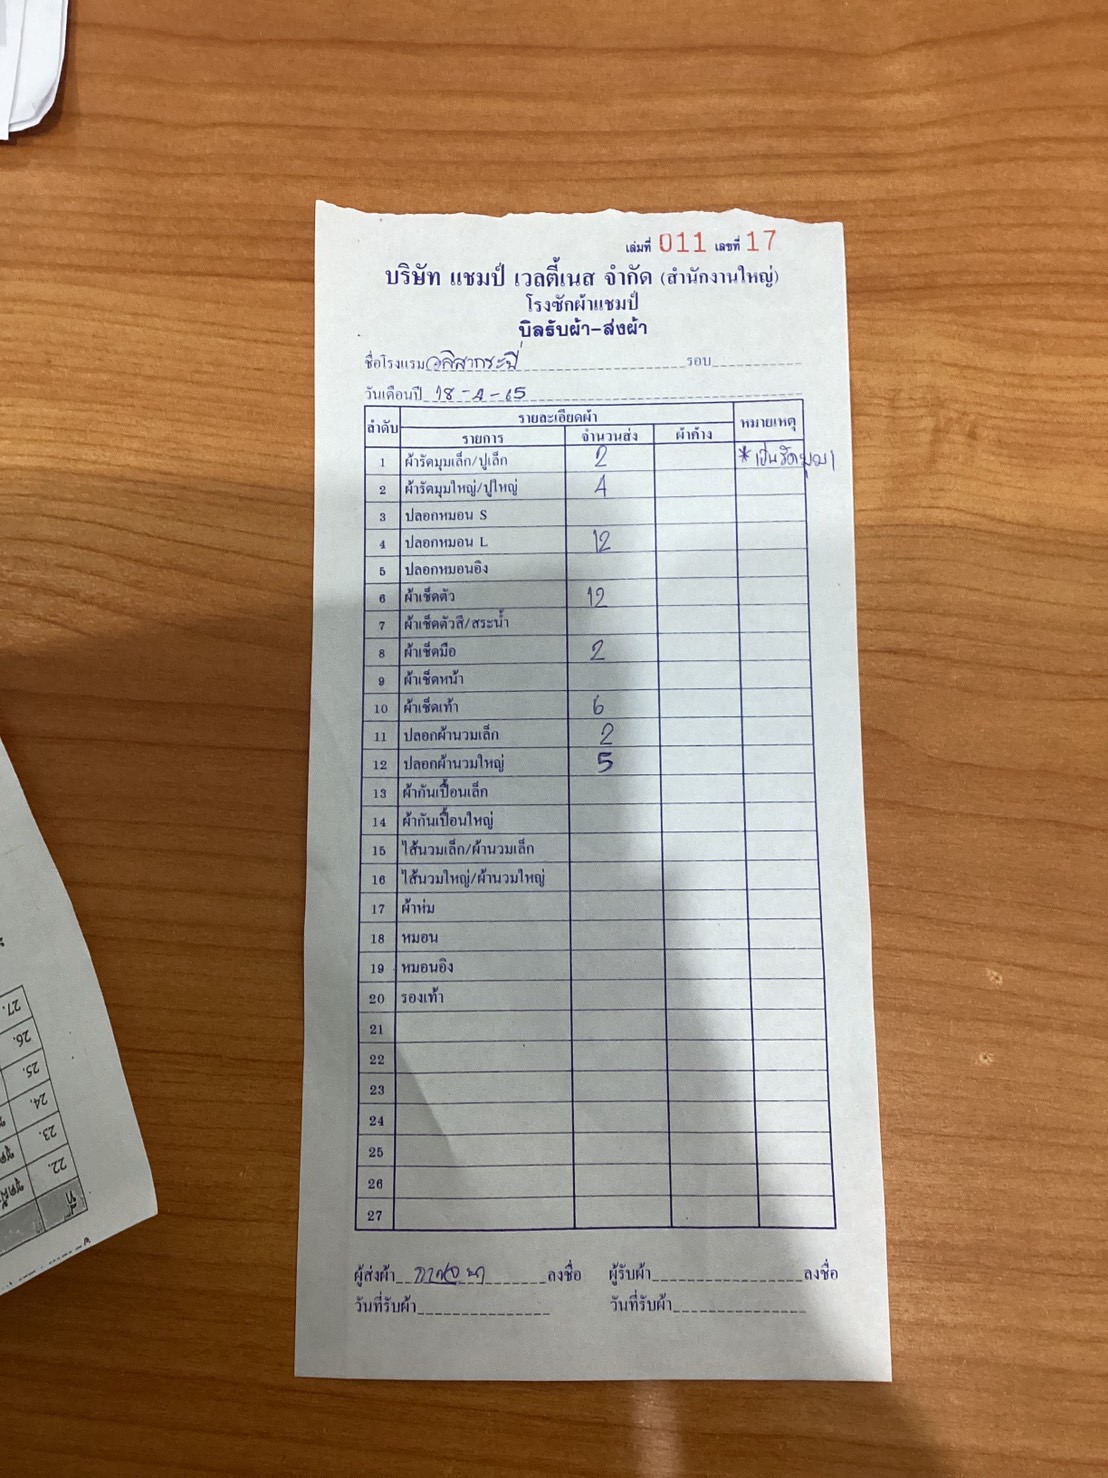 เล่มที่ 011 เลขที่ 17
บริษัท แชมป์ เวลตี้เนส จำกัด (สำนักงานใหญ่)
โรงซักผ้าแชมป์
บิลรับผ้า-ส่งผ้า
ชื่อโรงแรม วลิสากระบี่ รอบ
วันเดือนปี 18-4-65
ลำดับ รายละเอียดผ้า หมายเหตุ
รายการ จำนวนส่ง ผ้าค้าง
1 ผ้ารัดมุมเล็ก/ปูเล็ก 2 * เป็นรัดมุม 1
2 ผ้ารัดมุมใหญ่/ปูใหญ่ 4
3 ปลอกหมอน S
4 ปลอกหมอน L 12
5 ปลอกหมอนอิง
6 ผ้าเช็ดตัว 12
7 ผ้าเช็ดตัวสี/สระน้ำ
8 ผ้าเช็ดมือ 2
9 ผ้าเช็ดหน้า
10 ผ้าเช็ดเท้า 6
11 ปลอกผ้านวมเล็ก 2
12 ปลอกผ้านวมใหญ่ 5
13 ผ้ากันเปื้อนเล็ก
14 ผ้ากันเปื้อนใหญ่
15 ไส้นวมเล็ก/ผ้านวมเล็ก
16 ไส้นวมใหญ่/ผ้านวมใหญ่
17 ผ้าห่ม
18 หมอน
19 หมอนอิง
20 รองเท้า
21
22
23
24
25
26
27
ผู้ส่งผ้า ลงชื่อ ผู้รับผ้า ลงชื่อ
วันที่รับผ้า วันที่รับผ้า
27.
26.
25.
24.
23.
22.
ที่